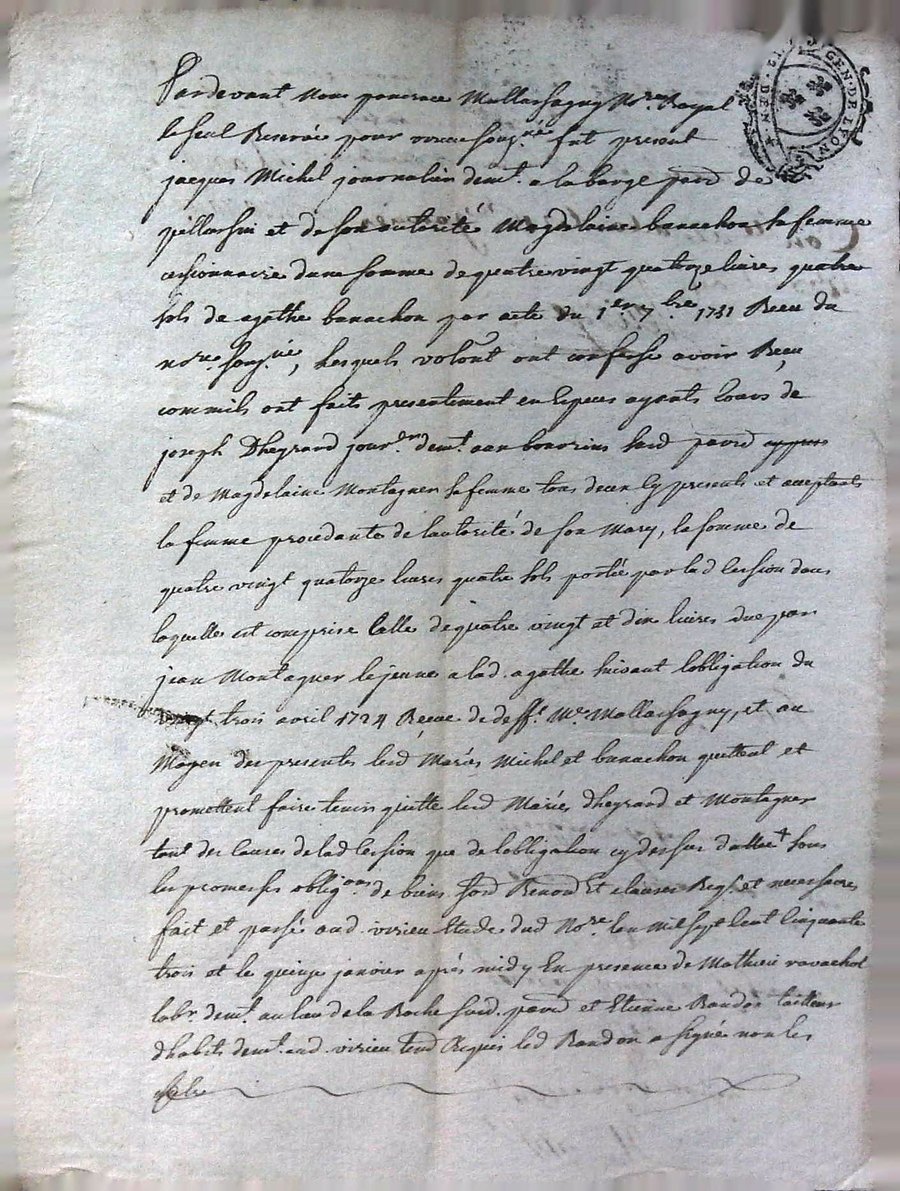 Pardevant Nous Mallassagny No.re Royal
le seul Reservé pour sousig.né fut present
jacques Michel journalier dem.t a la barge parr. de
pellussin et de son autorité Magdelaine banachon sa femme
cessionnaire dune somme de quatre vingt quatorze livres quatre
sols de agathe banachon par acte du 1er 7bre 1751 Receu du
no.re sousig.né, lesquels volont. ont confessé avoir Receu
comme ils ont faits presentement en Especes ayants cours de
joseph Dheyrand jour.er dem.t parr.
et de Magdelaine Montagner sa femme tous deux Cy presents et acceptants
la femme procedante de lautorité de son Mary, la somme de
quatre vingt quatorze livres quatre sols portée par lad Cession dans
laquelle est comprise Celle de quatre vingt et dix livres due par
jean Montagner le jeune a lad. agathe suivant lobligation du
vingt trois avril 1724 Receue de deff.t Me Mallassagny, et au
Moyen des presentes lesd Mariés Michel et banachon quittent et
promettent faire tenir quitte lesd Mariés dheyrand et Montagner
tant des Causes de lad Cession que de lobligation cy dessus dattée + sous
les promesses oblig.ons de biens et clauses Req. et necessaires
fait et passé aud. virieu Etude dud No.re lan Mil sept Cent Cinquante
trois et le quinze janvier après midy En presence de Mathieu ravachol
lab.r dem.t au lieu de la Roche susd. parr. et Etienne Randon tailleur
dhabits dem.t aud. virieu Requis led Randon a signé non les